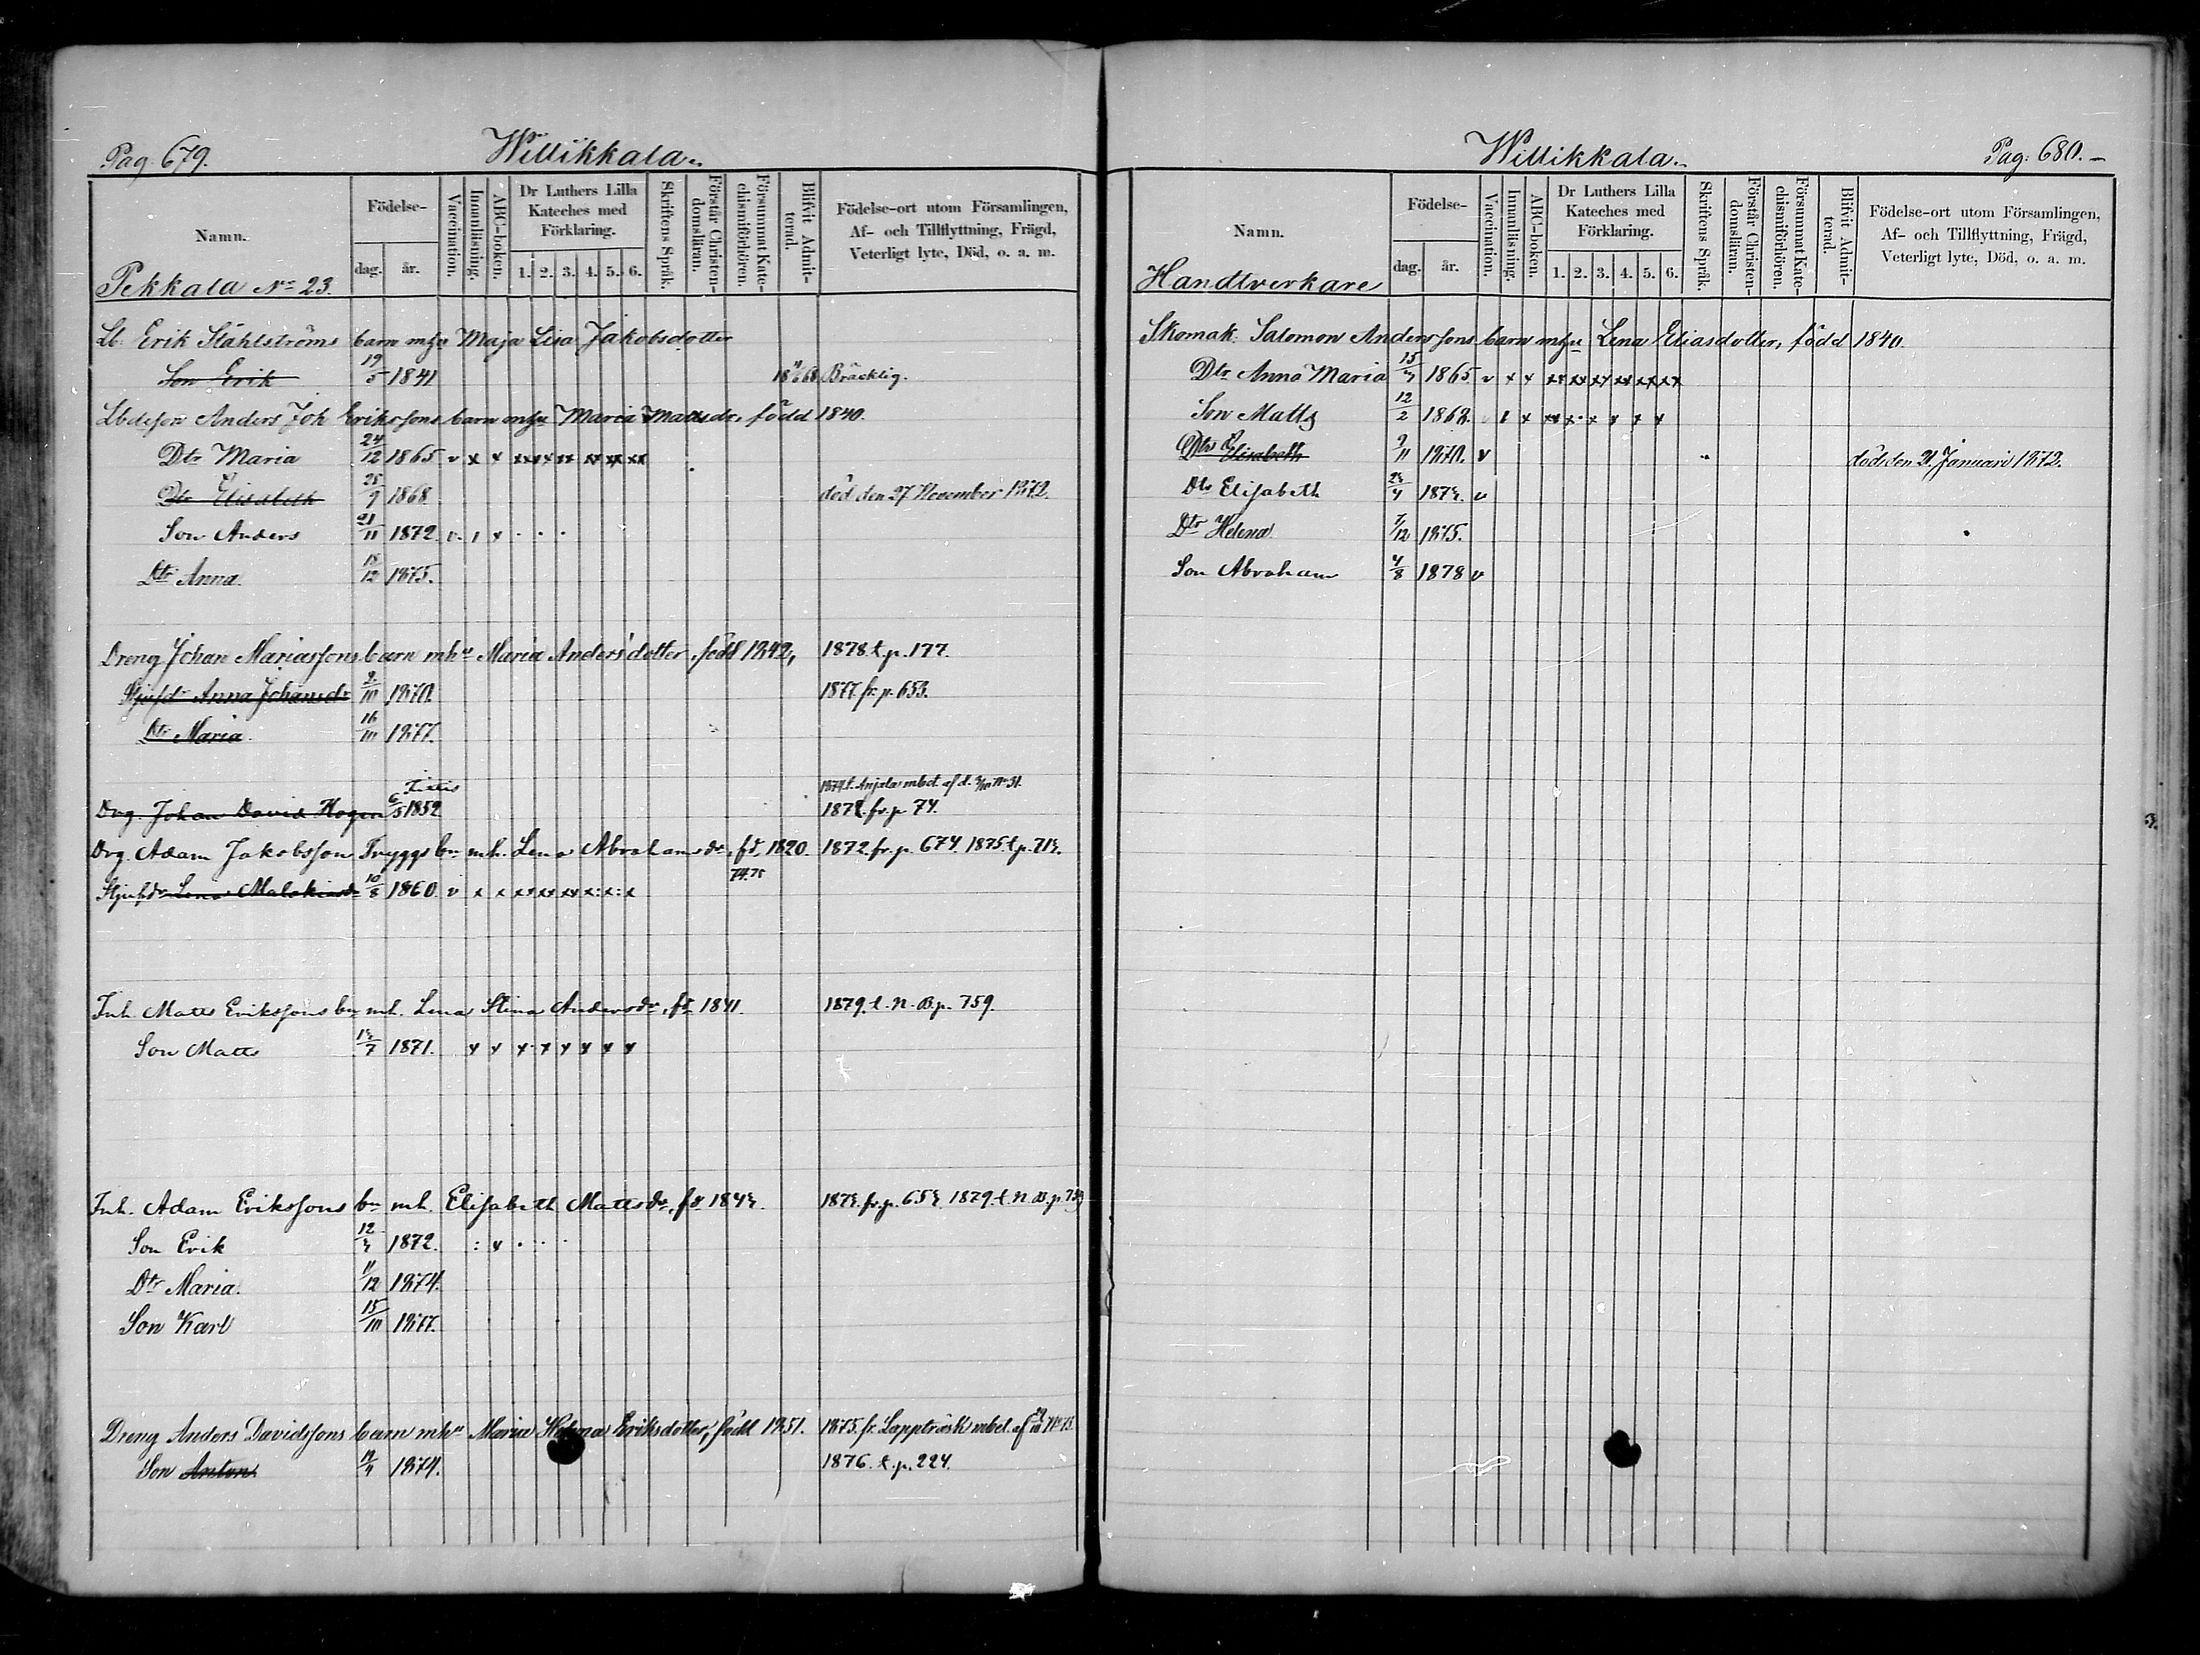 Pag. 679.
Willikkala.
Namn.
Födelse-
dag.
år.
Vaccination.
Innanläsning.
ABC-boken.
Dr Luthers Lilla
Kateches med
Förklaring.
1. 2. 3. 4. 5. 6.
Skriftens Språk.
Förstår Christen-
domsläran.
Försummat Kate-
chismiförhören.
Blifvit Admit-
terad.
Födelse-ort utom Församlingen,
Af- och Tillflyttning, Frägd,
Veterligt lyte, Död, o. a. m.
Pekkala No 23.
Lb. Erik Ståhlströms barn mhu Maja Lisa Jakobsdotter
Son Erik 19/5 1841 Bräcklig.
Lbdeson Anders Joh Erikssons barn mhu Maria Mattsdr, född 1840.
Dtr Maria 24/12 1865 v x x xx x xx xx xx xx
Dtr Elisabeth 25/9 1868 död den 27 November 1872.
Son Anders 21/11 1872. v. 1 x . . .
Dtr Anna 18/12 1875.
Dreng Johan Mariassons barn mhu Maria Andersdotter, född 1842, 1878 t. p. 177.
Stjufdr Anna Johansdr 2/10 1870. 1877 fr. p. 653.
Dtr Maria 16/10 1877.
1874 t. Anjala mbet. af d. No 31.
Drg. Johan David Hogen 6/5 1852 fr. p. 74.
Drg. Adam Jakobsson Tryggs bn mh. Lena Abrahamsdr, fd 1820. 1872 fr. p. 674. 1875 t. p. 713.
74. 75
Stjufdr Lena Malakiasdr 10/8 1860. v x x xx xx xx x: x: x
Inh. Matts Erikssons bn mh. Lena Stina Andersdr, fd 1841. 1879. t. N. B. p. 759.
Son Matts 13/7 1871. x x x x x x x x
Inh. Adam Erikssons bn mh. Elisabeth Mattsdr, fd 1843. 1873. fr. p. 653. 1879. t. N. B. p. 759
Son Erik 12/3 1872. : x . . .
Dtr Maria. 11/12 1874.
Son Karl 15/10 1877.
Dreng Anders Davidssons barn mhu Maria Helena Eriksdotter, född 1851. 1875. fr. Lappträsk mbet. af
Son Anton 1874. 1876. t. p. 224.
Willikkala.
Pag. 680.
Namn.
Födelse-
dag.
år.
Vaccination.
Innanläsning.
ABC-boken.
Dr Luthers Lilla
Kateches med
Förklaring.
1. 2. 3. 4. 5. 6.
Skriftens Språk.
Förstår Christen-
domsläran.
Försummat Kate-
chismiförhören.
Blifvit Admit-
terad.
Födelse-ort utom Församlingen,
Af- och Tillflyttning, Frägd,
Veterligt lyte, Död, o. a. m.
Handtverkare
Skomak. Salomon Anderssons barn mhu Lena Eliasdotter, född 1840.
Dtr Anna Maria 15/3 1865. v x x xx xx xx xx xx xx
Son Matts 12/2 1868. 1 x xx x. x x x x
Dtr Elisabeth 9/11 1870. v död den 21 Januari 1872.
Dtr Elisabeth 23/4 1873. v
Dtr Helena 7/12 1875.
Son Abraham 4/8 1878 v